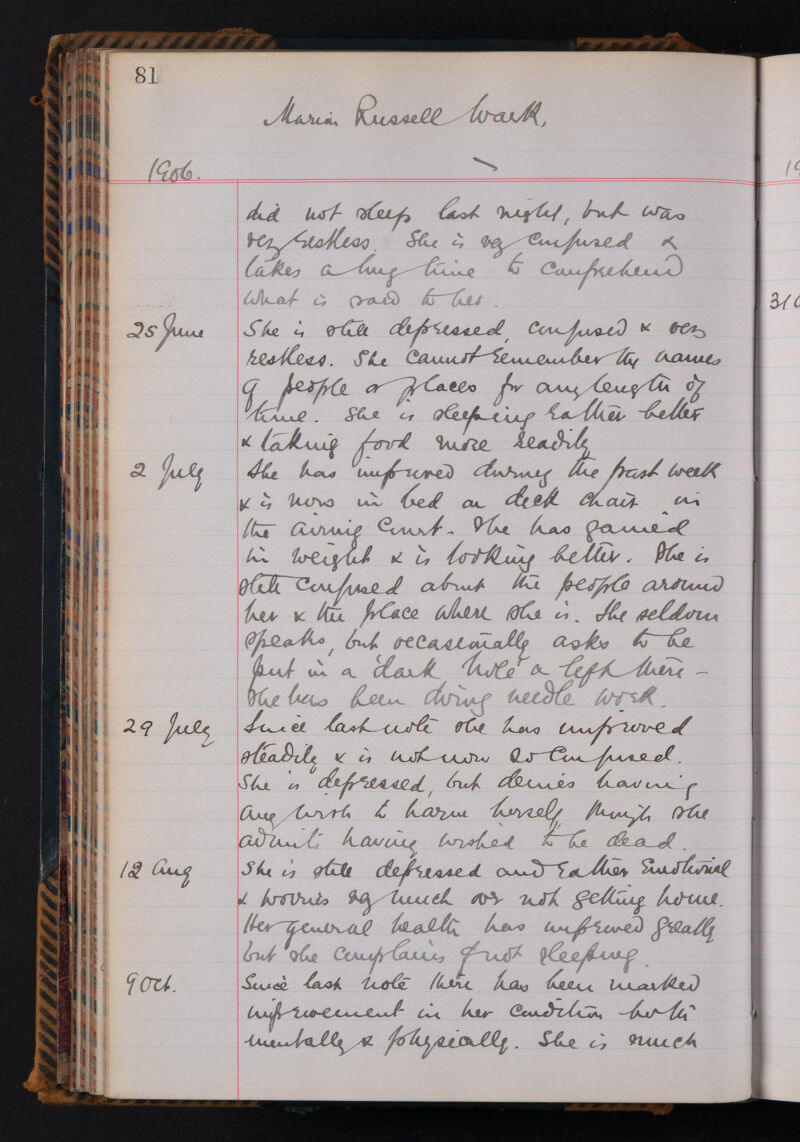 81
Marion Russell Wark.
1906.
did not sleep last night, but was
very restless. She is very confused &
takes a long time to comprehend
what is said to her.
310
25 June She is still depressed, confused & very
restless. She cannot remember the names
of people or places for any length of
time. She is sleeping rather better
& taking food more readily
2 July She has improved during the past week
& is now in bed on deck chair in
the Airing Court. She has gained
in weight & is looking better. She is
still confused about the people around
her & the place where she is. She seldom
speaks, but occasionally asks to be
put in a 'dark hole' & left there -
She has been doing needle work.
29 July Since last note she has improved
steadily & is not now so confused.
She is depressed, but denies having
any wish to harm herself, though she
admits having wished to be dead.
12 Aug She is still depressed and rather Emotional
& worries very much over not getting home.
Her general health has improved greatly
but she complains of not sleeping.
9 Oct. Since last note there has been marked
improvement in her condition both
mentally & physically. She is much